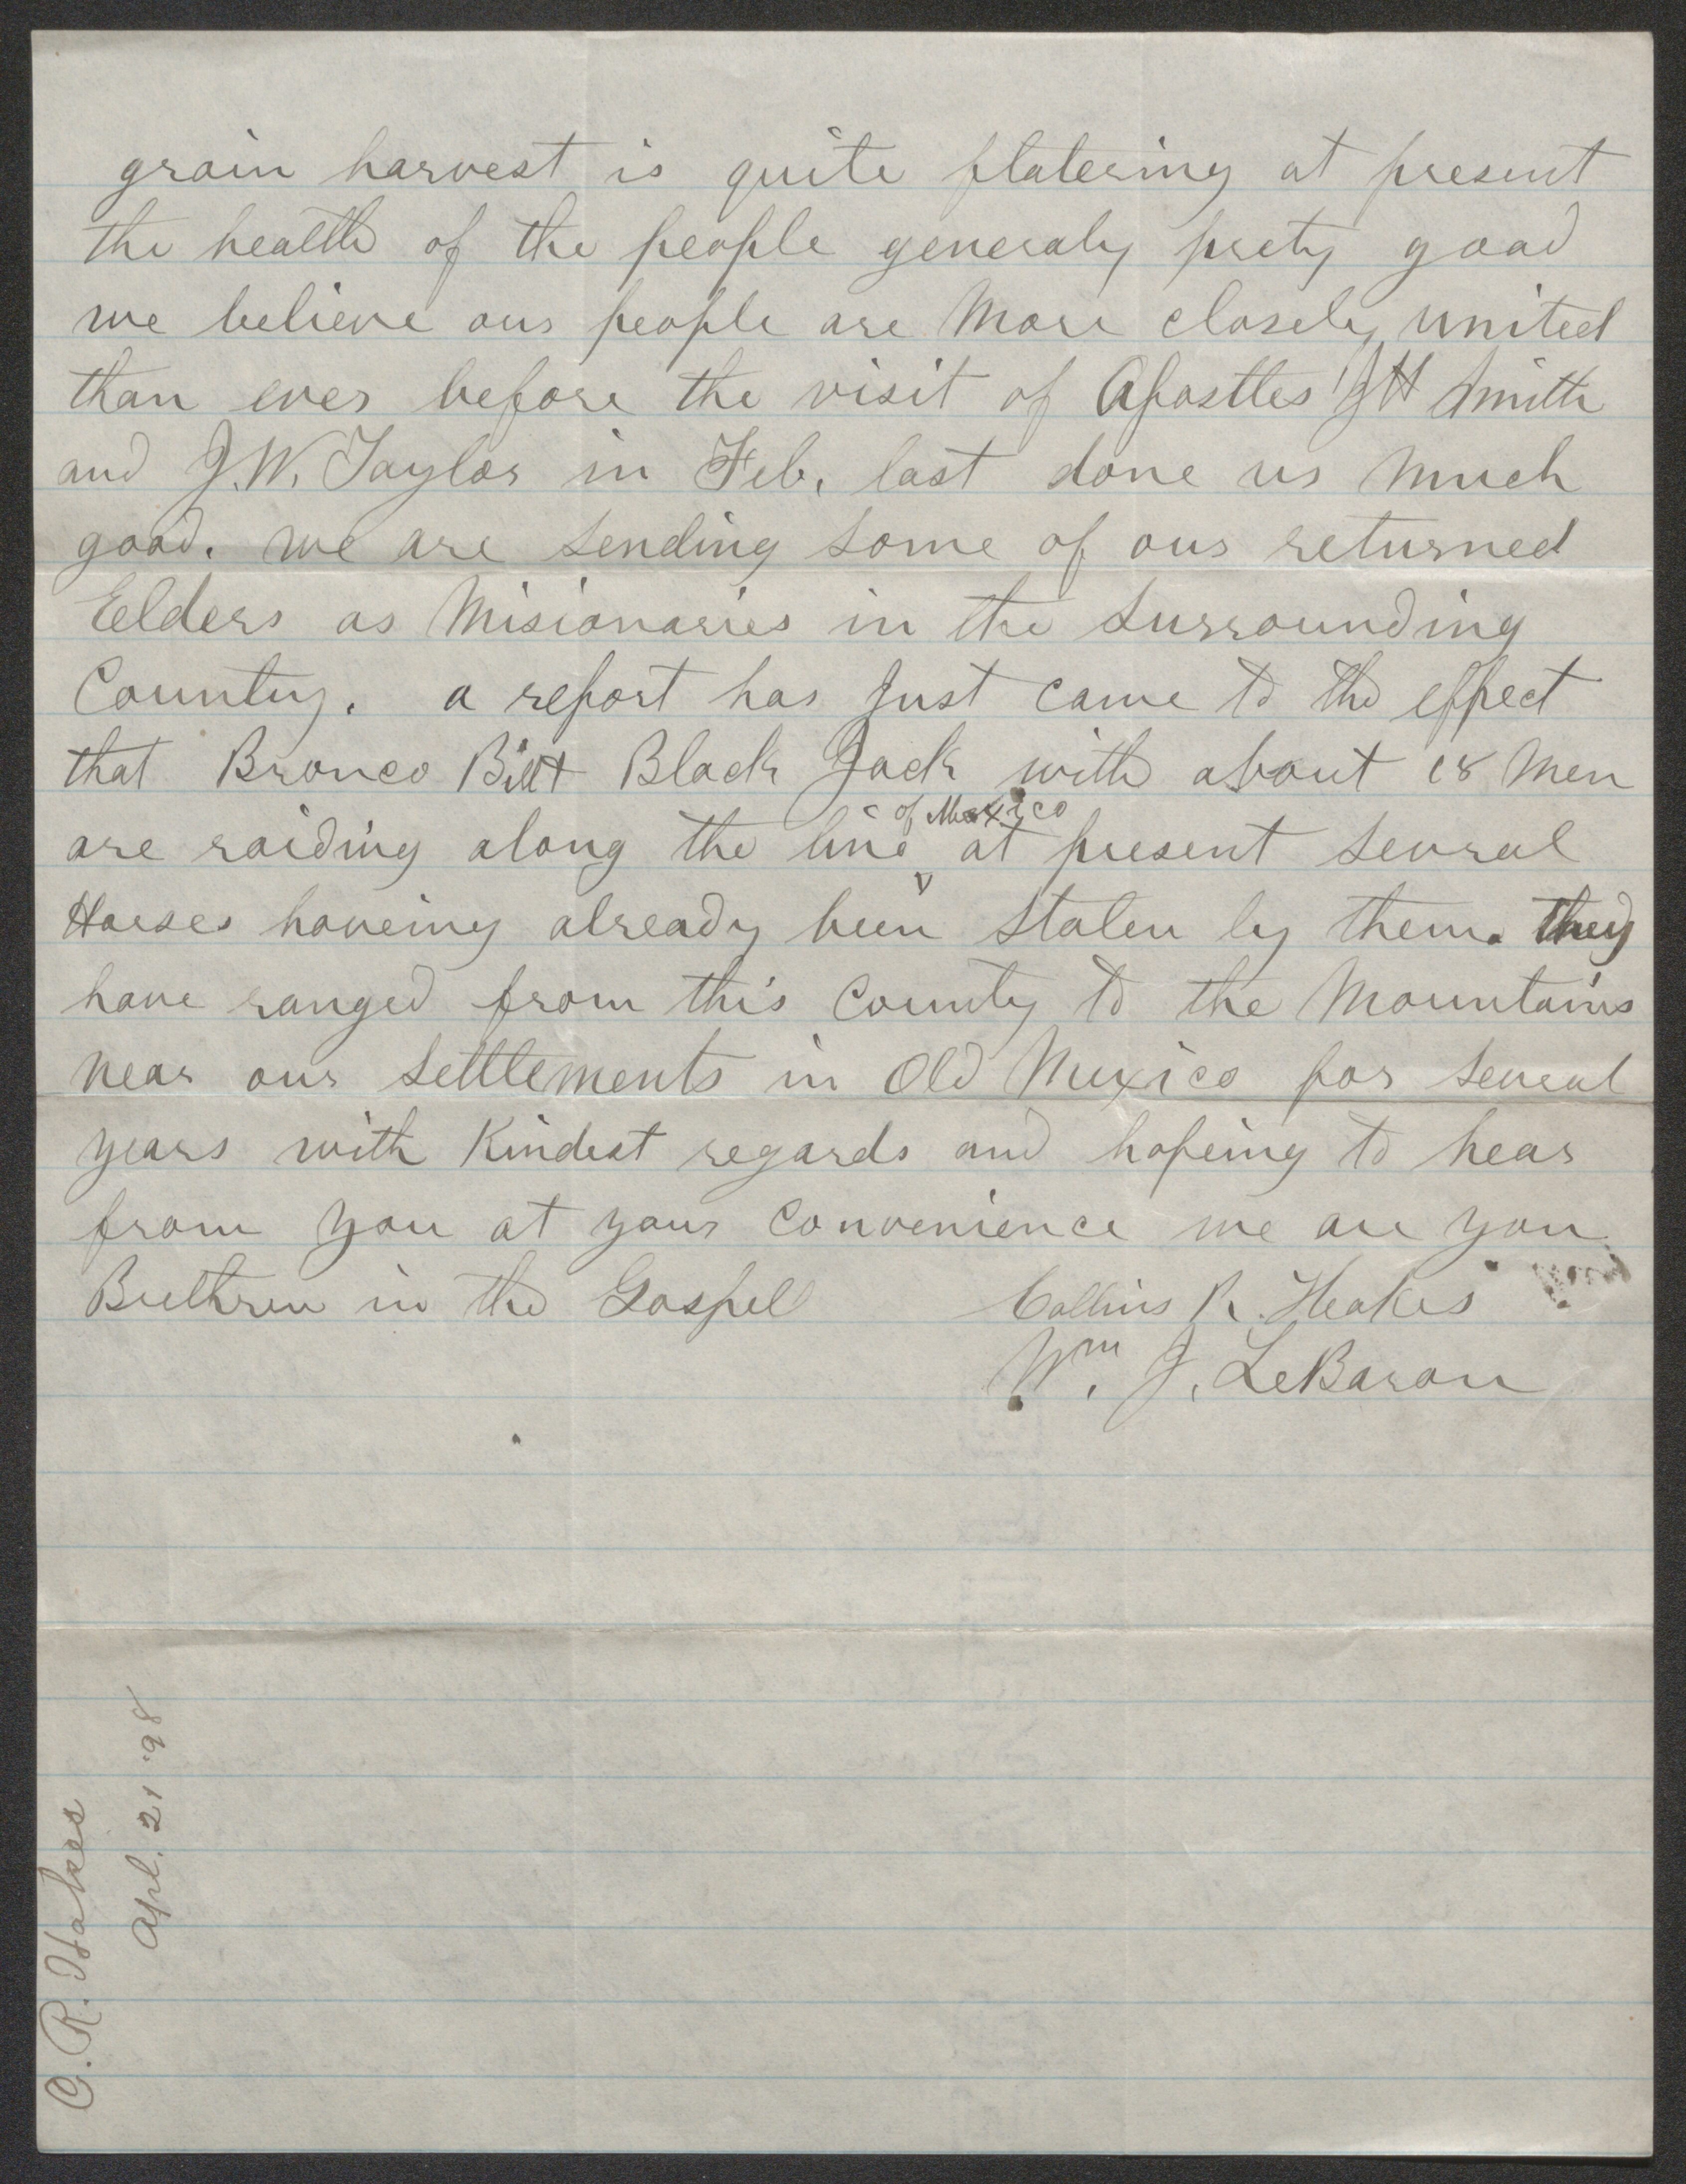 grain harvest is quite flatering at present
the health of the people generaly prety good
we believe our people are More closely united
than ever before the visit of Apostles J H Smith
and J. W. Taylor in Feb. last done us Much
good. we are sending some of our returned
Eelders as Misionaries in the surrounding
County. a report has Just came to the effect
that Bronco Bill + Black Jack with about 18 Men
of Mexico
are raiding along the line at present sevral
Horses haveing already been stolen by them. they
have ranged from this County to the Mountains
near our settlements in Old Mexico for several
years with Kindest regards and hopeing to hear
from you at your convenience we are you
Brethren in the Gospel Collins R. Heakes
Wm. J. LeBaron
C. R. Hakes
Apl. 21 '98